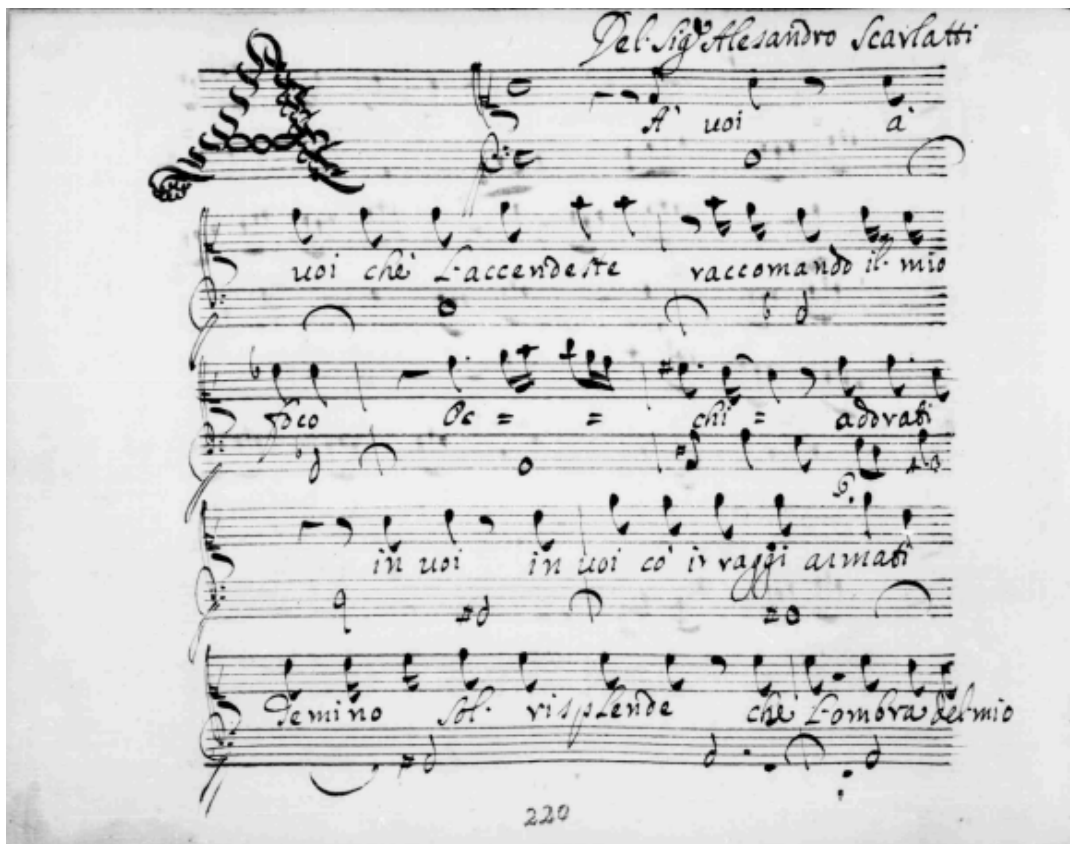 Del Sigr Alesandro Scarlatti
A
A' uoi à
uoi che L'accendeste raccomando il mio
foco Oc = = chi = adorati
in uoi in uoi co' i raggi armati
demino sol risplende che L'ombra del mio
220